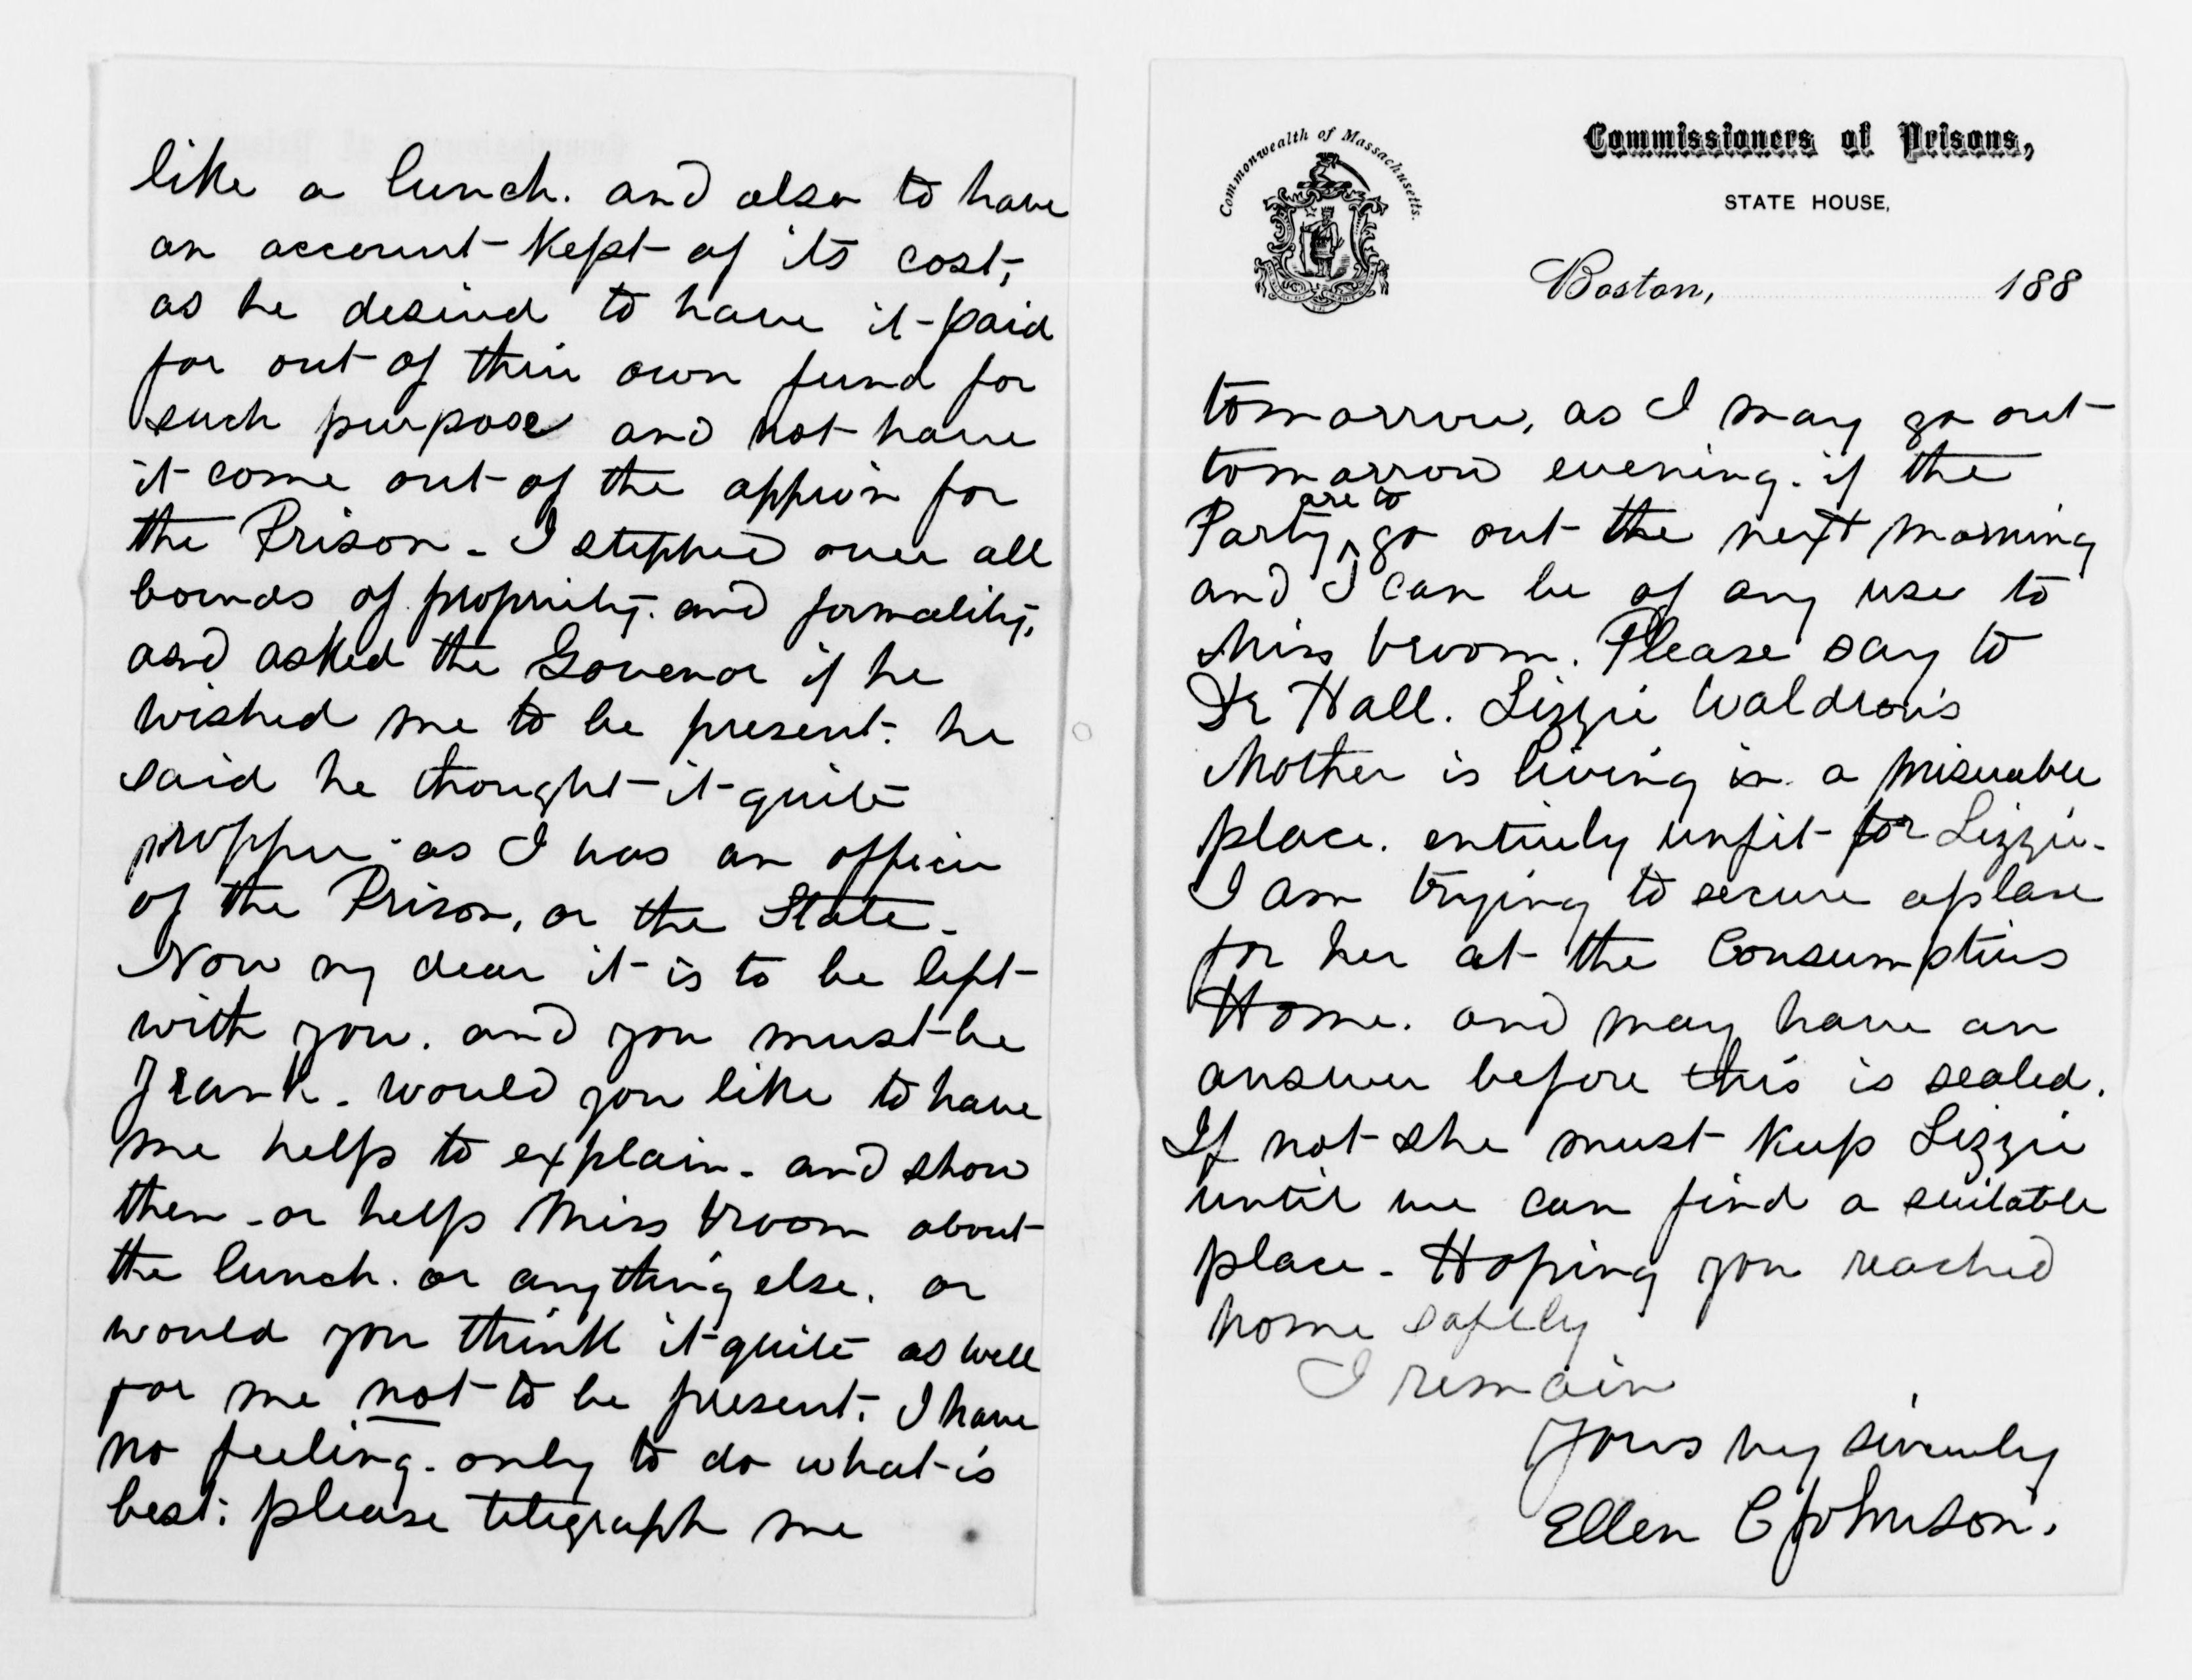 like a lunch. and also to have
an account kept of its cost,
as he desired to have it paid
for out of their own fund for
such purpose and not have
it come out of the appron for
the Prison - I stepped over all
bounds of propriety. and formality,
and asked the Govenor if he
wished me to be present. he
said he thought it quite
propper as I was an officer
of the Prison, or the State -
Now my dear it is to be left
with you. and you must be
Frank - would you like to have
me help to explain - and show
them - or help Miss Vroom about
the lunch. or anything else. or
would you think it quite as well
for me not to be present. I have
no feeling. only to do what is
best: please telegraph me
Commonwealth of Massachusetts.
Commissioners of Prisons,
STATE HOUSE,
Boston, 188
tomorrow, as I may go out
tomorrow evening. if the
Party are to go out the next morning
and I can be of any use to
Miss Vroom. Please say to
Dr Hall. Lizzie Waldron's
Mother is living in a miserable
place. entirely unfit for Lizzie -
I am trying to secure a place
for her at the Consumptives
Home. and may have an
answer before this is sealed.
If not she must keep Lizzie
until we can find a suitable
place - Hoping you reached
home safely
I remain
Yours very sincerely
Ellen C Johnson.